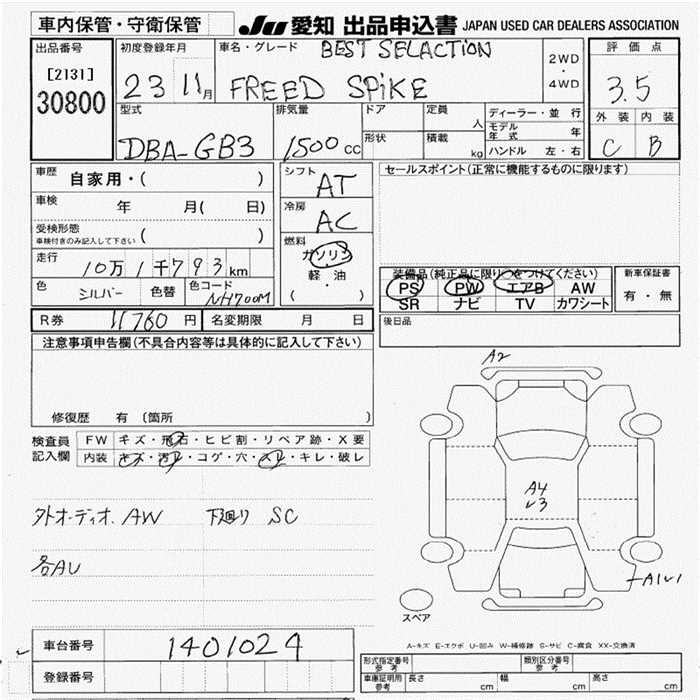 車内保管・守衛保管 JU 愛知 出品申込書 JAPAN USED CAR DEALERS ASSOCIATION
出品番号 初度登録年月 車名・グレード BEST SELACTION 2WD ・ 4WD 評価点
[2131] 23 11月 FREED SPiKE 3.5
30800 型式 排気量 ドア 定員 人 ディーラー・並行 外装 内装
DBA-GB3 1500cc 形状 積載 kg モデル年式 年 C B
ハンドル 左・右
車歴 自家用・( ) シフト AT セールスポイント(正常に機能するものに限ります)
車検 年 月( 日) 冷房 AC
受検形態 ( )
車検付きのみ記入して下さい
燃料 ガソリン
走行 10万1千793km 軽・油 装備品(純正品に限り○をつけてください) 新車保証書
色 シルバー 色替 色コード NH700M ( ・ ) PS PW エアB AW 有・無
SR ナビ TV カワシート
R券 11760円 名変期限 月 日 後日品
注意事項申告欄(不具合内容等は具体的に記入して下さい)
修復歴 有 〔箇所 〕
A2
検査員 FW キズ・飛石・ヒビ割・リペア跡・X要
記入欄 内装 キズ・汚レ・コゲ・穴・スレ・キレ・破レ
A4
外オーディオ. AW 下廻り SC
各AU
A1
スペア
A-キズ E-エクボ U-凹み W-補修跡 S-サビ C-腐食 XX-交換済
車台番号 1401024
登録番号
形式指定番号 参考 類別区分番号 参考
車庫証明用 参考 長さ cm 幅 cm 高さ cm